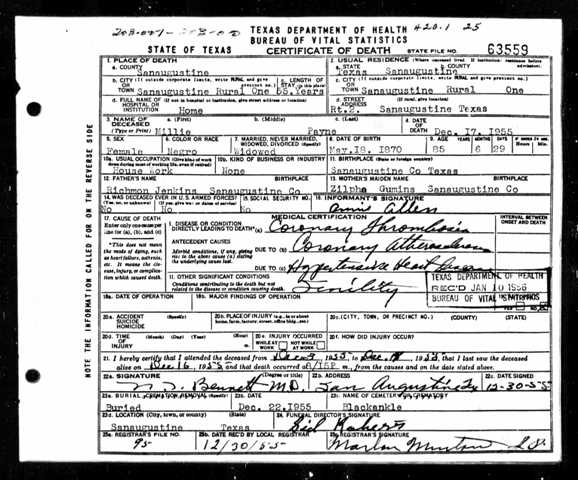 TEXAS DEPARTMENT OF HEALTH 420.1 25
BUREAU OF VITAL STATISTICS
STATE OF TEXAS CERTIFICATE OF DEATH STATE FILE NO. 63559
1. PLACE OF DEATH 2. USUAL RESIDENCE (Where deceased lived. If institution: residence before admission).
a. COUNTY Sanaugustine a. STATE Texas b. COUNTY Sanaugustine
b. CITY (If outside corporate limits, write RURAL and give precinct no.) c. LENGTH OF STAY (in this place) c. CITY (If outside corporate limits, write RURAL and give precinct no.)
OR TOWN Sanaugustine Rural One 85.Years OR TOWN Sanaugustine Rural One
d. FULL NAME OF HOSPITAL OR INSTITUTION (If not in hospital or institution, give street address or location) Home d. STREET ADDRESS (If rural, give location) Rt.2. Sanaugustine Texas
3. NAME OF DECEASED a. (First) b. (Middle) c. (Last) 4. DATE OF DEATH
(Type or Print) Millie Payne Dec. 17.1955
5. SEX 6. COLOR OR RACE 7. MARRIED, NEVER MARRIED, WIDOWED, DIVORCED (Specify) 8. DATE OF BIRTH 9. AGE YEARS MONTHS DAYS
Female Negro Widowed May.18, 1870 85 6 29
10a. USUAL OCCUPATION (Give kind of work done during most of working life, even if retired) 10b. KIND OF BUSINESS OR INDUSTRY 11. BIRTHPLACE (State or foreign country)
House Work None Sanaugustine Co Texas
12. FATHER'S NAME BIRTHPLACE 13. MOTHER'S MAIDEN NAME BIRTHPLACE
Richmon Jenkins Sanaugustine Co Zilpha Gumins Sanaugustine Co
14. WAS DECEASED EVER IN U.S. ARMED FORCES? 15. SOCIAL SECURITY NO. 16. INFORMANT'S SIGNATURE
No No No Allen
17. CAUSE OF DEATH MEDICAL CERTIFICATION INTERVAL BETWEEN ONSET AND DEATH
Enter only one cause per line for (a), (b), and (c)
I. DISEASE OR CONDITION DIRECTLY LEADING TO DEATH* (a) Coronary Thrombosis
*This does not mean the mode of dying, such as heart failure, asthenia, etc. It means the disease, injury, or complication which caused death.
ANTECEDENT CAUSES
Morbid conditions, if any, giving rise to the above cause (a) stating the underlying cause last.
DUE TO (b) Coronary
DUE TO (c) Hypertensive Heart
II. OTHER SIGNIFICANT CONDITIONS
Conditions contributing to the death but not related to the disease or condition causing death.
Senility
TEXAS DEPARTMENT OF HEALTH
REC'D JAN 10 1956
BUREAU OF VITAL STATISTICS
18a. DATE OF OPERATION 18b. MAJOR FINDINGS OF OPERATION
20a. ACCIDENT SUICIDE HOMICIDE (Specify) 20b. PLACE OF INJURY (e.g., in or about home, farm, factory, street, office bldg., etc.) 20c. (CITY, TOWN, OR PRECINCT NO.) (COUNTY) (STATE)
20d. TIME OF INJURY (Month) (Day) (Year) (Hour) 20e. INJURY OCCURRED WHILE AT WORK NOT WHILE AT WORK 20f. HOW DID INJURY OCCUR?
21. I hereby certify that I attended the deceased from 1955 to Dec. 1955, that I last saw the deceased
alive on Dec 16 1955 and that death occurred at m., from the causes and on the date stated above.
22a. SIGNATURE (Degree or title) 22b. ADDRESS 22c. DATE SIGNED
Bennett M.D. San Augustine 12-30-55
23a. BURIAL, CREMATION, REMOVAL (Specify) 23b. DATE 23c. NAME OF CEMETERY OR CREMATORY
Buried Dec. 22.1955 Blackankle
23d. LOCATION (City, town, or county) (State) 24. FUNERAL DIRECTOR'S SIGNATURE
Sanaugustine Texas Sid Roberts
25a. REGISTRAR'S FILE NO. 25b. DATE REC'D BY LOCAL REGISTRAR 25c. REGISTRAR'S SIGNATURE
95 12/30/55
NOTE THE INFORMATION CALLED FOR ON THE REVERSE SIDE